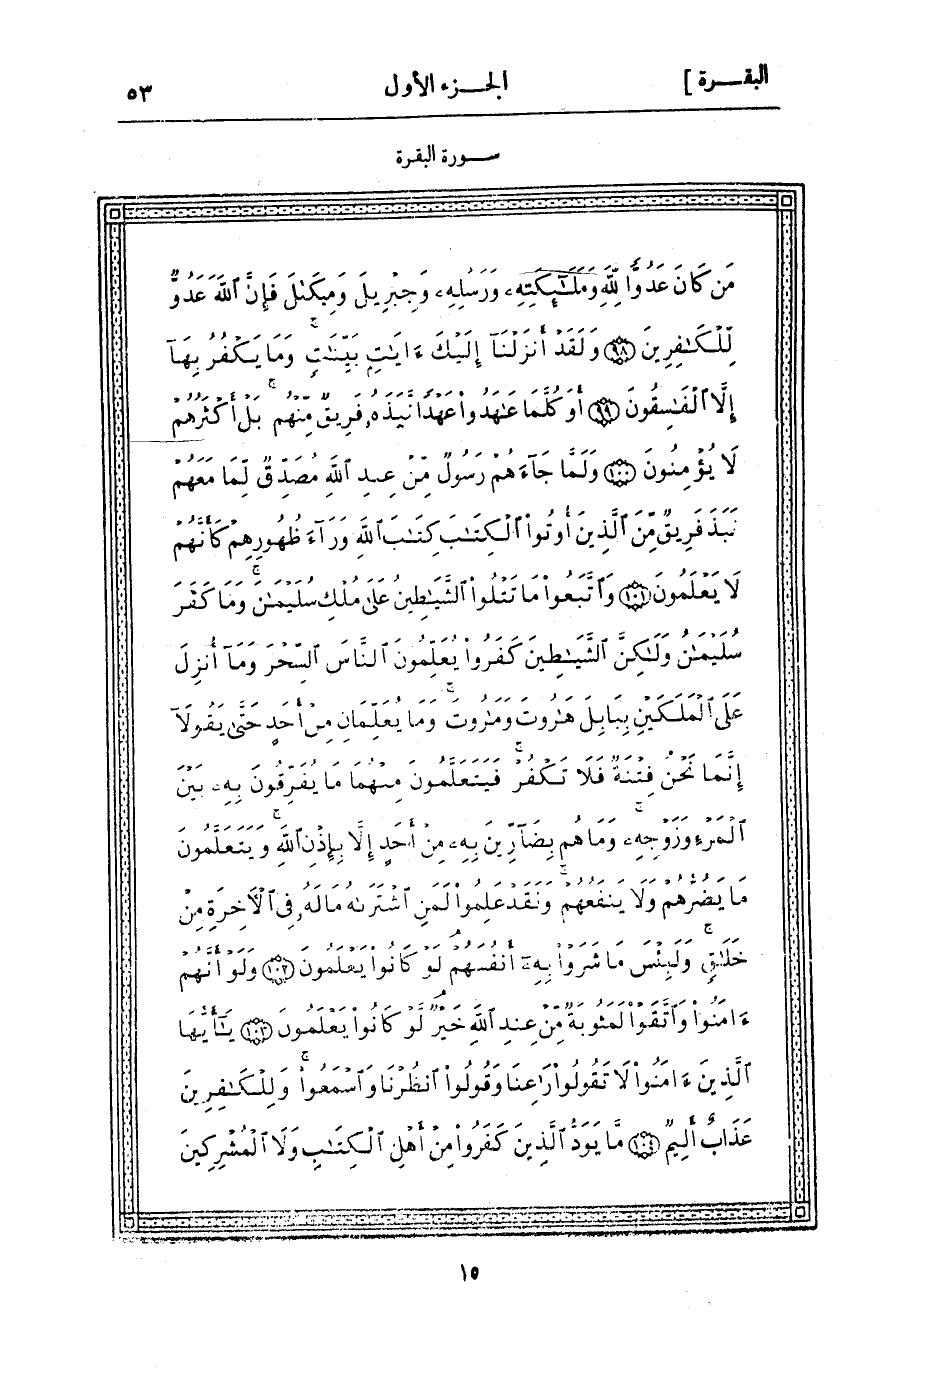 البقرة ]
الجزء الأول
٥٣
سورة البقرة
مَن كَانَ عَدُوًّا لِّلَّهِ وَمَلَٰٓئِكَتِهِۦ وَرُسُلِهِۦ وَجِبْرِيلَ وَمِيكَىٰلَ فَإِنَّ ٱللَّهَ عَدُوٌّ
لِّلْكَٰفِرِينَ ٩٨ وَلَقَدْ أَنزَلْنَآ إِلَيْكَ ءَايَٰتٍۭ بَيِّنَٰتٍۖ وَمَا يَكْفُرُ بِهَآ
إِلَّا ٱلْفَٰسِقُونَ ٩٩ أَوَكُلَّمَا عَٰهَدُوا۟ عَهْدًا نَّبَذَهُۥ فَرِيقٌ مِّنْهُمۚ بَلْ أَكْثَرُهُمْ
لَا يُؤْمِنُونَ ١٠٠ وَلَمَّا جَآءَهُمْ رَسُولٌ مِّنْ عِندِ ٱللَّهِ مُصَدِّقٌ لِّمَا مَعَهُمْ
نَبَذَ فَرِيقٌ مِّنَ ٱلَّذِينَ أُوتُوا۟ ٱلْكِتَٰبَ كِتَٰبَ ٱللَّهِ وَرَآءَ ظُهُورِهِمْ كَأَنَّهُمْ
لَا يَعْلَمُونَ ١٠١ وَٱتَّبَعُوا۟ مَا تَتْلُوا۟ ٱلشَّيَٰطِينُ عَلَىٰ مُلْكِ سُلَيْمَٰنَۖ وَمَا كَفَرَ
سُلَيْمَٰنُ وَلَٰكِنَّ ٱلشَّيَٰطِينَ كَفَرُوا۟ يُعَلِّمُونَ ٱلنَّاسَ ٱلسِّحْرَ وَمَآ أُنزِلَ
عَلَى ٱلْمَلَكَيْنِ بِبَابِلَ هَٰرُوتَ وَمَٰرُوتَۚ وَمَا يُعَلِّمَانِ مِنْ أَحَدٍ حَتَّىٰ يَقُولَآ
إِنَّمَا نَحْنُ فِتْنَةٌ فَلَا تَكْفُرْۖ فَيَتَعَلَّمُونَ مِنْهُمَا مَا يُفَرِّقُونَ بِهِۦ بَيْنَ
ٱلْمَرْءِ وَزَوْجِهِۦۚ وَمَا هُم بِضَآرِّينَ بِهِۦ مِنْ أَحَدٍ إِلَّا بِإِذْنِ ٱللَّهِۚ وَيَتَعَلَّمُونَ
مَا يَضُرُّهُمْ وَلَا يَنفَعُهُمْۚ وَلَقَدْ عَلِمُوا۟ لَمَنِ ٱشْتَرَىٰهُ مَا لَهُۥ فِى ٱلْـَٔاخِرَةِ مِنْ
خَلَٰقٍۚ وَلَبِئْسَ مَا شَرَوْا۟ بِهِۦٓ أَنفُسَهُمْۚ لَوْ كَانُوا۟ يَعْلَمُونَ ١٠٢ وَلَوْ أَنَّهُمْ
ءَامَنُوا۟ وَٱتَّقَوْا۟ لَمَثُوبَةٌ مِّنْ عِندِ ٱللَّهِ خَيْرٌۖ لَّوْ كَانُوا۟ يَعْلَمُونَ ١٠٣ يَٰٓأَيُّهَا
ٱلَّذِينَ ءَامَنُوا۟ لَا تَقُولُوا۟ رَٰعِنَا وَقُولُوا۟ ٱنظُرْنَا وَٱسْمَعُوا۟ۗ وَلِلْكَٰفِرِينَ
عَذَابٌ أَلِيمٌ ١٠٤ مَّا يَوَدُّ ٱلَّذِينَ كَفَرُوا۟ مِنْ أَهْلِ ٱلْكِتَٰبِ وَلَا ٱلْمُشْرِكِينَ
١٥